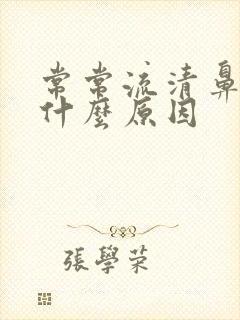 常常流清鼻
什麼原因
張學荣